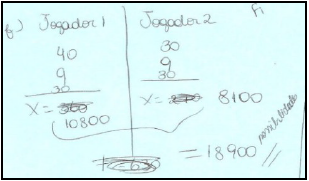 b) Jogador 1 Jogador 2
40 30
9 9
30 30
X = X = 8100
10800
= 18900 possibilidades